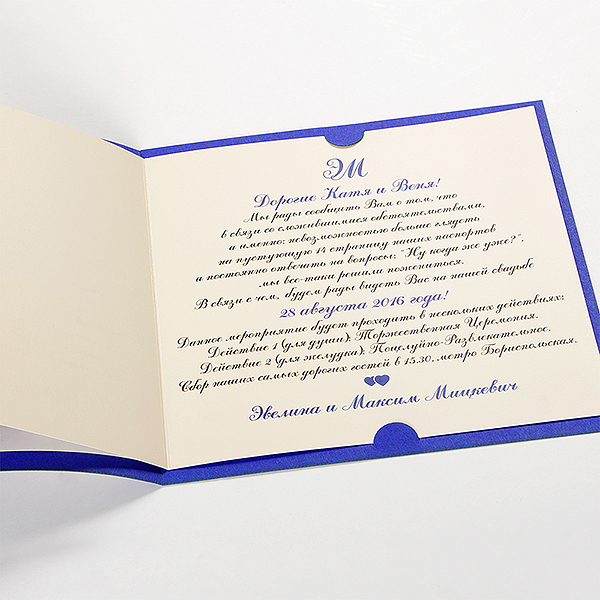 ЭМ
Дорогие Катя и Веня!
Мы рады сообщить Вам о том, что
в связи со сложившимися обстоятельствами,
а именно: невозможностью больше глядеть
на пустующую 14 страницу наших паспортов
и постоянно отвечать на вопросы: "Ну когда же уже?",
мы все-таки решили пожениться.
В связи с чем, будем рады видеть Вас на нашей свадьбе
28 августа 2016 года!
Данное мероприятие будет проходить в нескольких действиях:
Действие 1 (для души): Торжественная Церемония.
Действие 2 (для желудка): Поцелуйно-Развлекательное.
Сбор наших самых дорогих гостей в 15.30, метро Бориспольская.
Эвелина и Максим Мицкевич